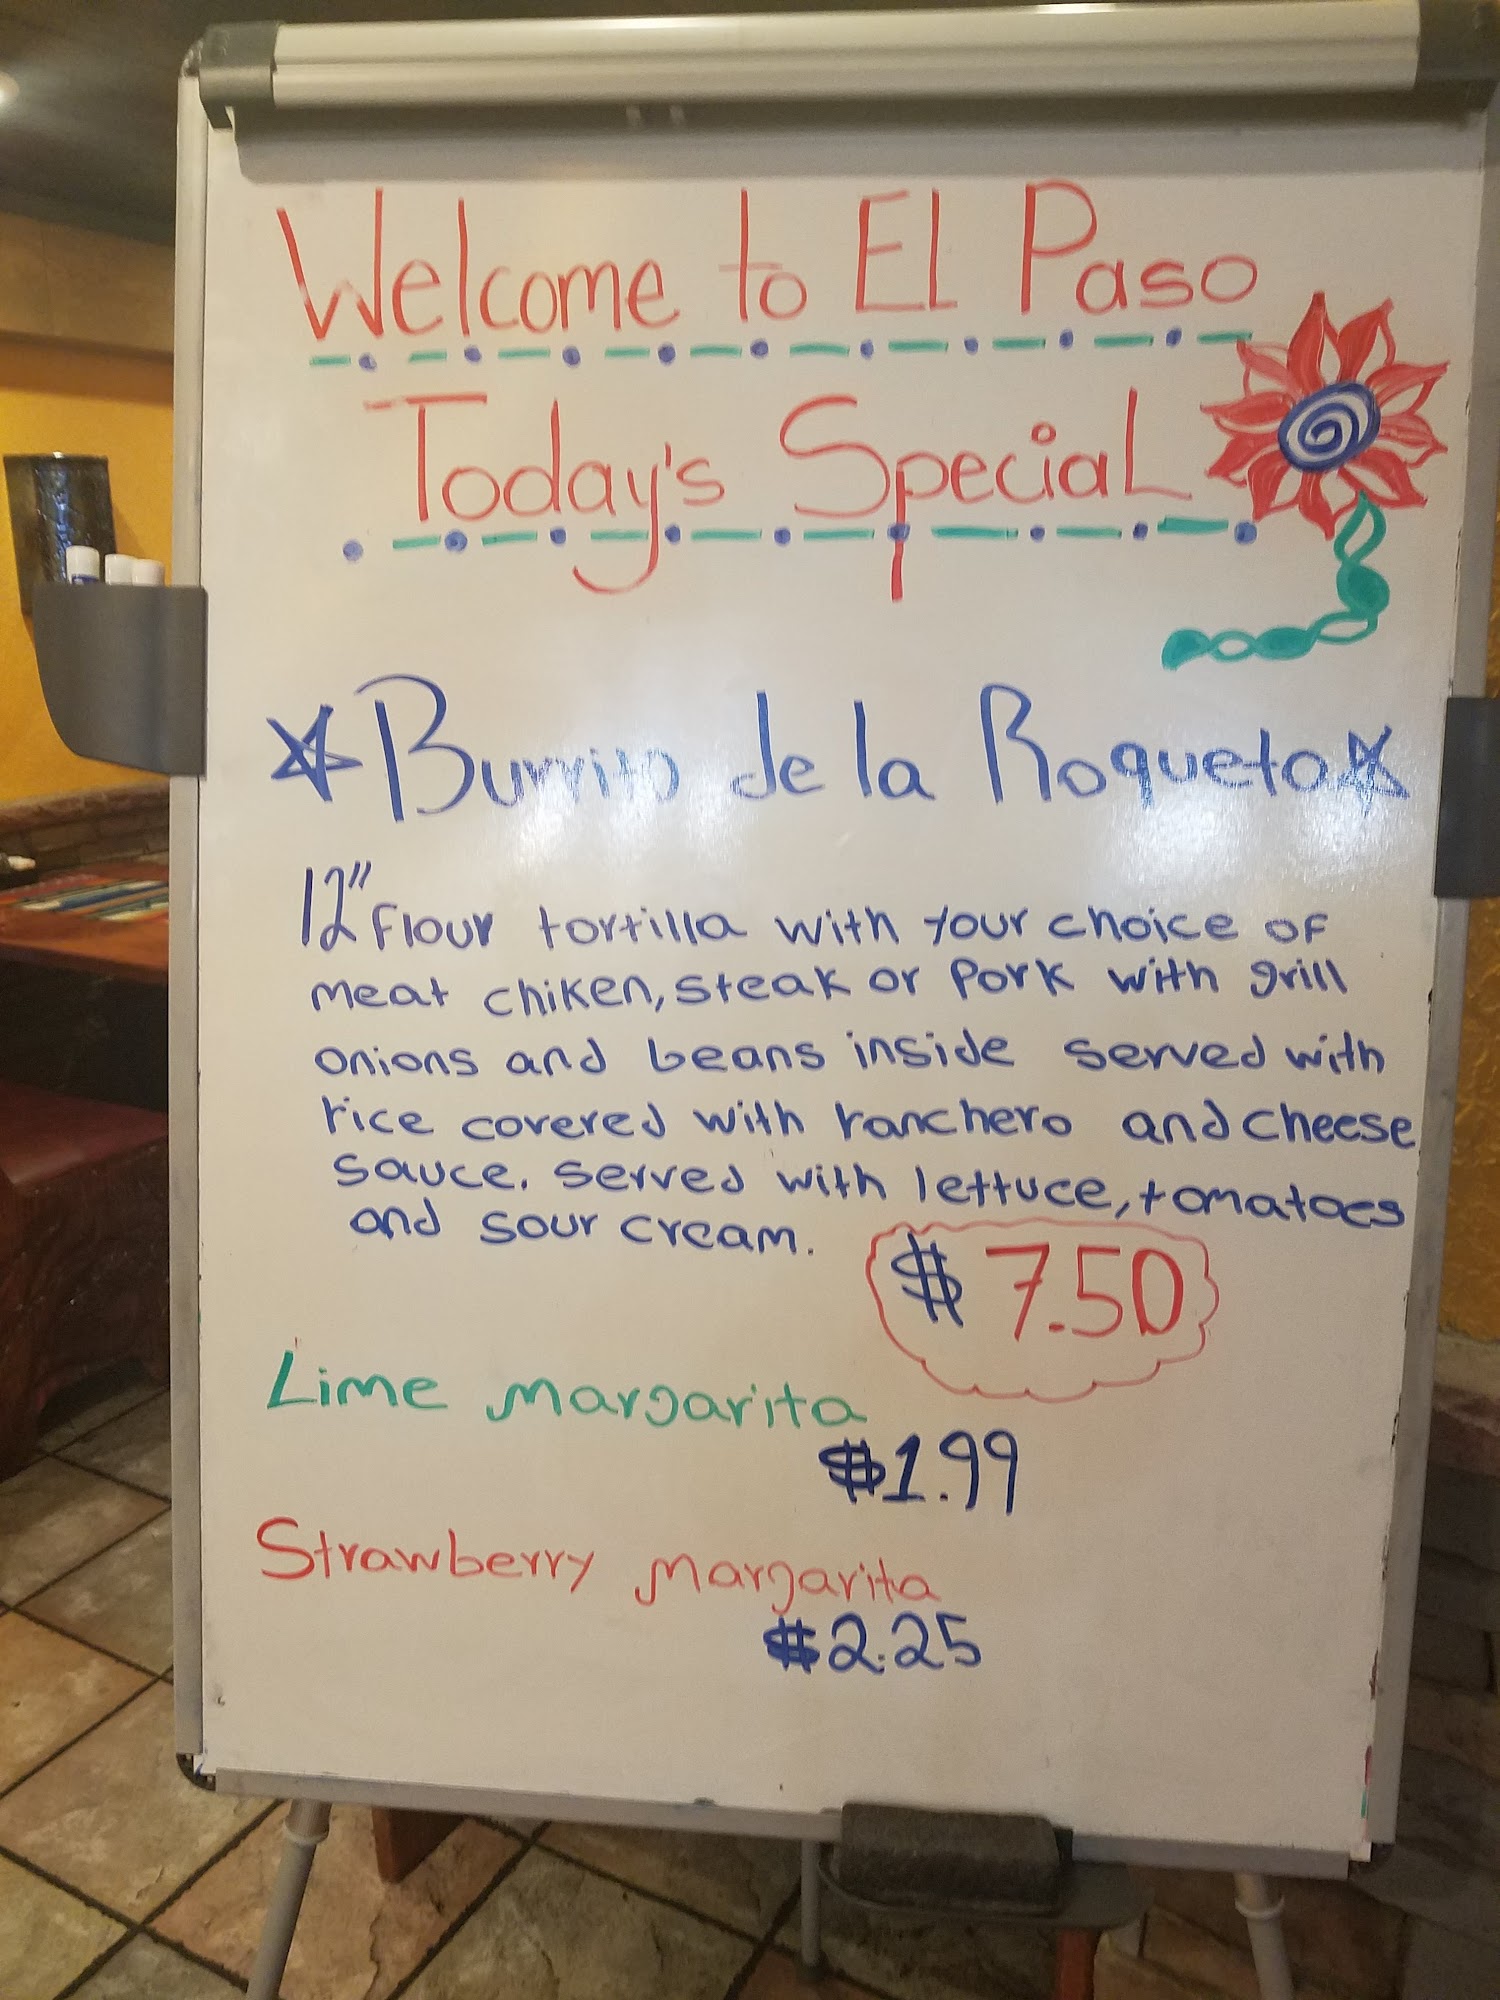 Welcome to El Paso
Today's Special
Burrito de la Roqueta
12" flour tortilla with your choice of
meat chiken, steak or pork with grill
onions and beans inside served with
rice covered with ranchero and cheese
sauce. served with lettuce, tomatoes
and sour cream.
$ 7.50
Lime margarita
$1.99
Strawberry margarita
$2.25